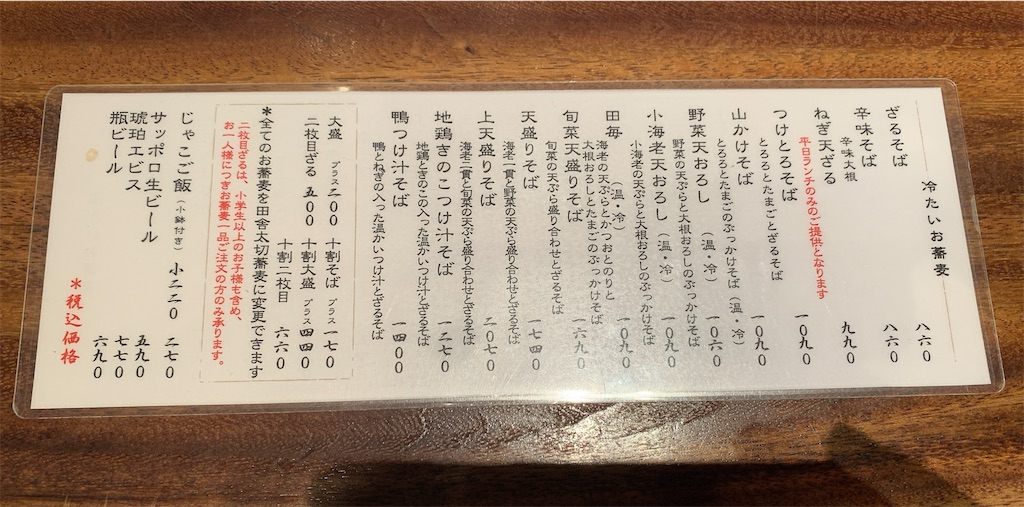 冷たいお蕎麦
ざるそば 八六〇
辛味そば 八六〇
辛味大根
ねぎ天ざる 九九〇
平日ランチのみのご提供となります
つけとろそば 一〇九〇
とろろとたまごとざるそば
山かけそば (温・冷) 一〇九〇
とろろとたまごのぶっかけそば
野菜天おろし (温・冷) 一〇六〇
野菜の天ぷらと大根おろしのぶっかけそば
小海老天おろし (温・冷) 一〇九〇
小海老の天ぷらと大根おろしのぶっかけそば
田毎 (温・冷) 一〇九〇
海老の天ぷらとかつおとのりと
大根おろしとたまごのぶっかけそば
旬菜天盛りそば 一六九〇
旬菜の天ぷら盛り合わせとざるそば
天盛りそば 一七四〇
海老一貫と野菜の天ぷら盛り合わせとざるそば
上天盛りそば 二〇七〇
海老二貫と旬菜の天ぷら盛り合わせとざるそば
地鶏きのこつけ汁そば 一二七〇
地鶏ときのこの入った温かいつけ汁とざるそば
鴨つけ汁そば 一四〇〇
鴨とねぎの入った温かいつけ汁とざるそば
大盛 プラス二〇〇 十割そば プラス一七〇
二枚目ざる 五〇〇 十割大盛 プラス四四〇
十割二枚目 六六〇
＊全てのお蕎麦を田舎太切蕎麦に変更できます
二枚目ざるは、小学生以上のお子様も含め、
お一人様につきお蕎麦一品ご注文の方のみ承ります。
じゃこご飯(小鉢付き) 小二二〇 二七〇
サッポロ生ビール 五九〇
琥珀ヱビス 七七〇
瓶ビール 六九〇
＊税込価格